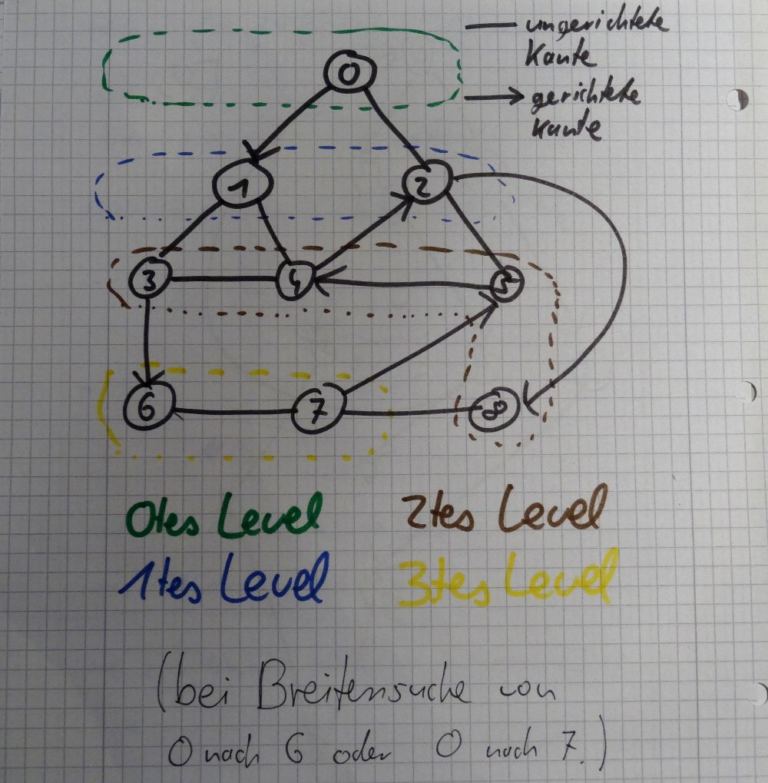 ungerichtete
Kante
gerichtete
Kante
0
1
2
3
4
5
6
7
8
0tes Level
2tes Level
1tes Level
3tes Level
(bei Breitensuche von
0 nach 6 oder 0 nach 7.)